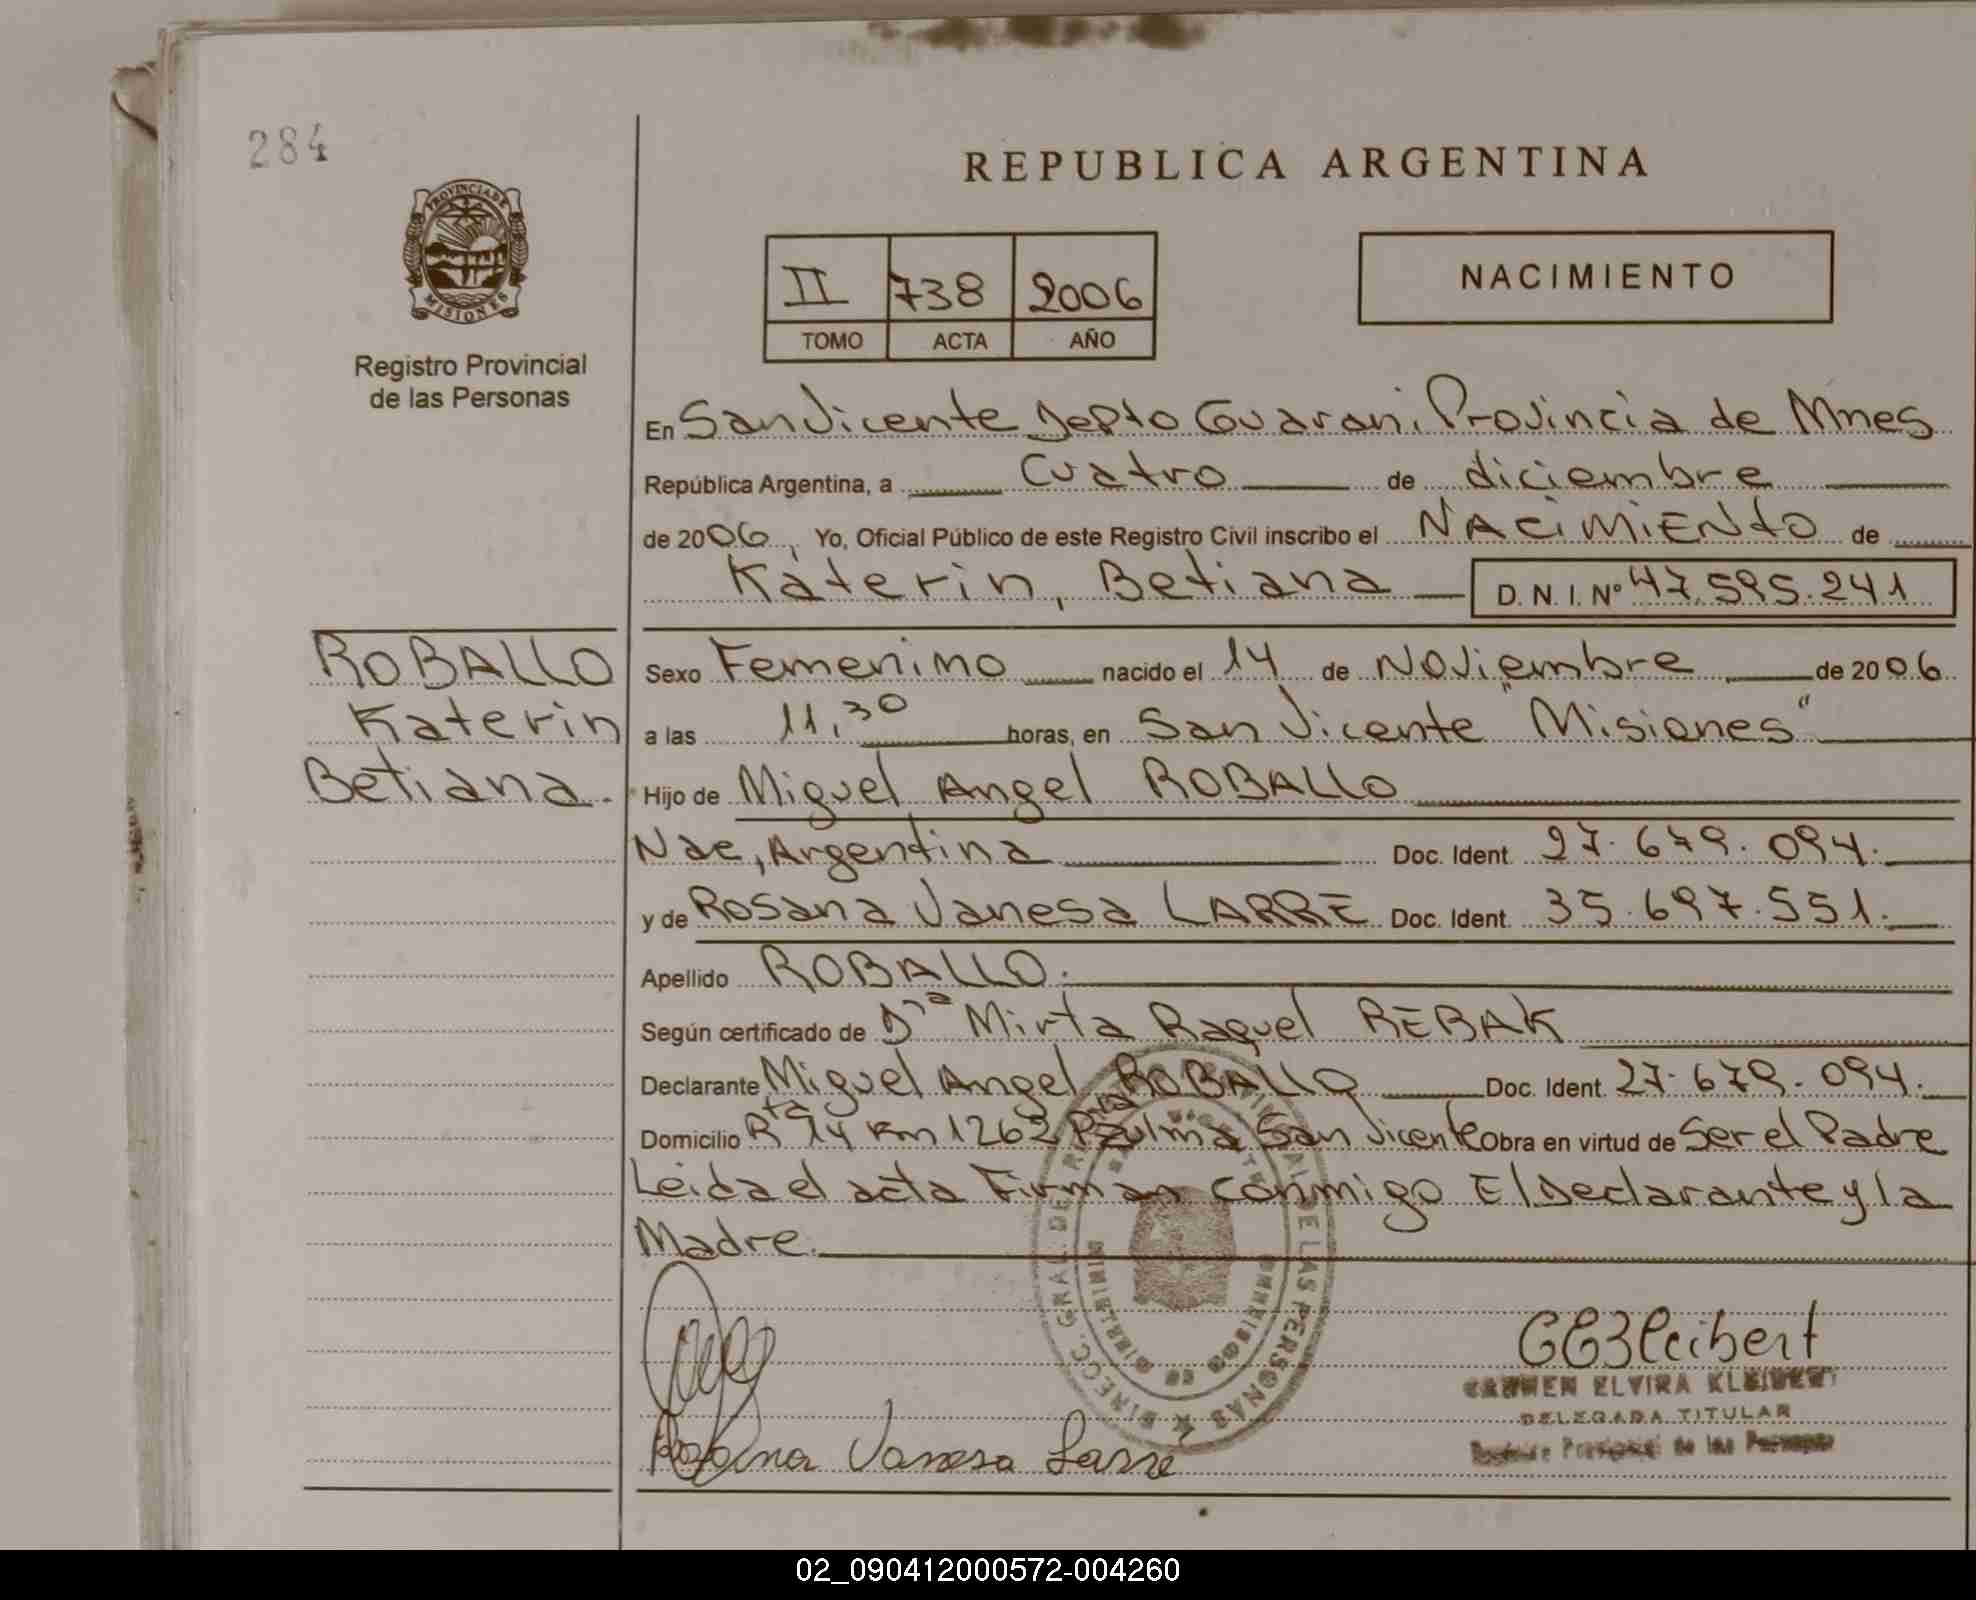 284
REPUBLICA ARGENTINA
PROVINCIA DE
MISIONES
Registro Provincial
de las Personas
II 738 2006
TOMO ACTA AÑO
NACIMIENTO
En San Vicente Depto Guarani, Provincia de Mnes
República Argentina, a Cuatro de diciembre
de 2006, Yo, Oficial Público de este Registro Civil inscribo el NACIMIENTO de
Katerin, Betiana D. N. I. Nº 47.595.241
ROBALLO
Katerin
Betiana.
Sexo Femenino nacido el 14 de Noviembre de 2006
a las 11,30 horas, en San Vicente "Misiones"
Hijo de Miguel Angel ROBALLO
Nac, Argentina Doc. Ident. 27.679.094.
y de Rosana Vanesa LARRE Doc. Ident. 35.697.551.
Apellido ROBALLO.
Según certificado de Dra Mirta Raquel REBAK
Declarante Miguel Angel ROBALLO Doc. Ident. 27.679.094.
Domicilio Rta 14 Km 1262 San Vicente Obra en virtud de Ser el Padre
Leida el acta Firman conmigo El Declarante y la
Madre.
DE LAS PERSONAS
Rosana Vanesa Larre
CEKleibert
CARMEN ELVIRA KLEIBERT
DELEGADA TITULAR
Provincial de las Personas
02_090412000572-004260